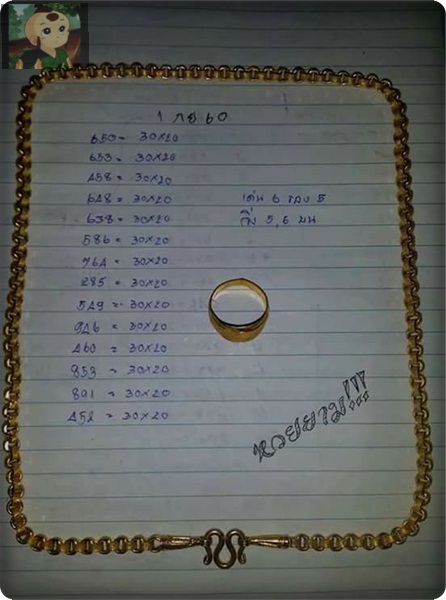 1 กย 60
650 = 30×20
653 = 30×20
458 = 30×20
648 = 30×20
638 = 30×20
586 = 30×20
764 = 30×20
285 = 30×20
549 = 30×20
926 = 30×20
460 = 30×20
953 = 30×20
891 = 30×20
452 = 30×20
เด่น 6 รอง 5
วิ่ง 5,6 บน
หวยยาม!!!